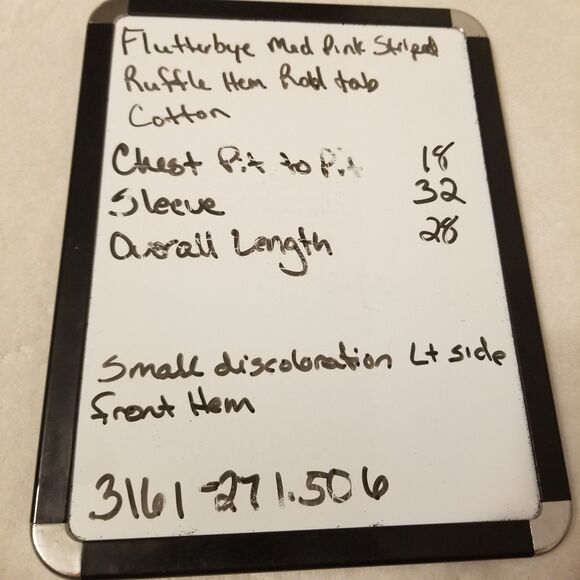 Flutterbye Med Pink Striped
Ruffle Hem Roll tab
Cotton
Chest Pit to Pit 18
Sleeve 32
Overall Length 28
Small discoloration Lt side
front Hem
3161-271.506